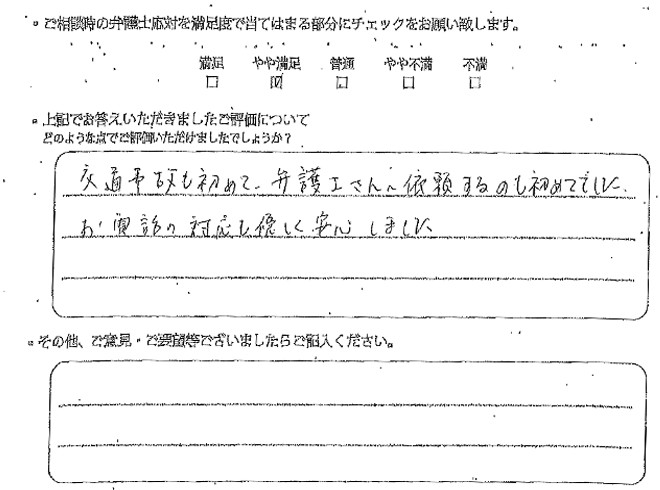 。ご相談時の弁護士応対を満足度で当てはまる部分にチェックをお願い致します。
満足 やや満足 普通 やや不満 不満
□ ☑ □ □ □
。上記でお答えいただきましたご評価について
どのような点でご評価いただけましたでしょうか？
交通事故も初めて、弁護士さんへ依頼するのも初めてでした。
お電話の対応も優しく安心しました
。その他、ご意見・ご要望等ございましたらご記入ください。